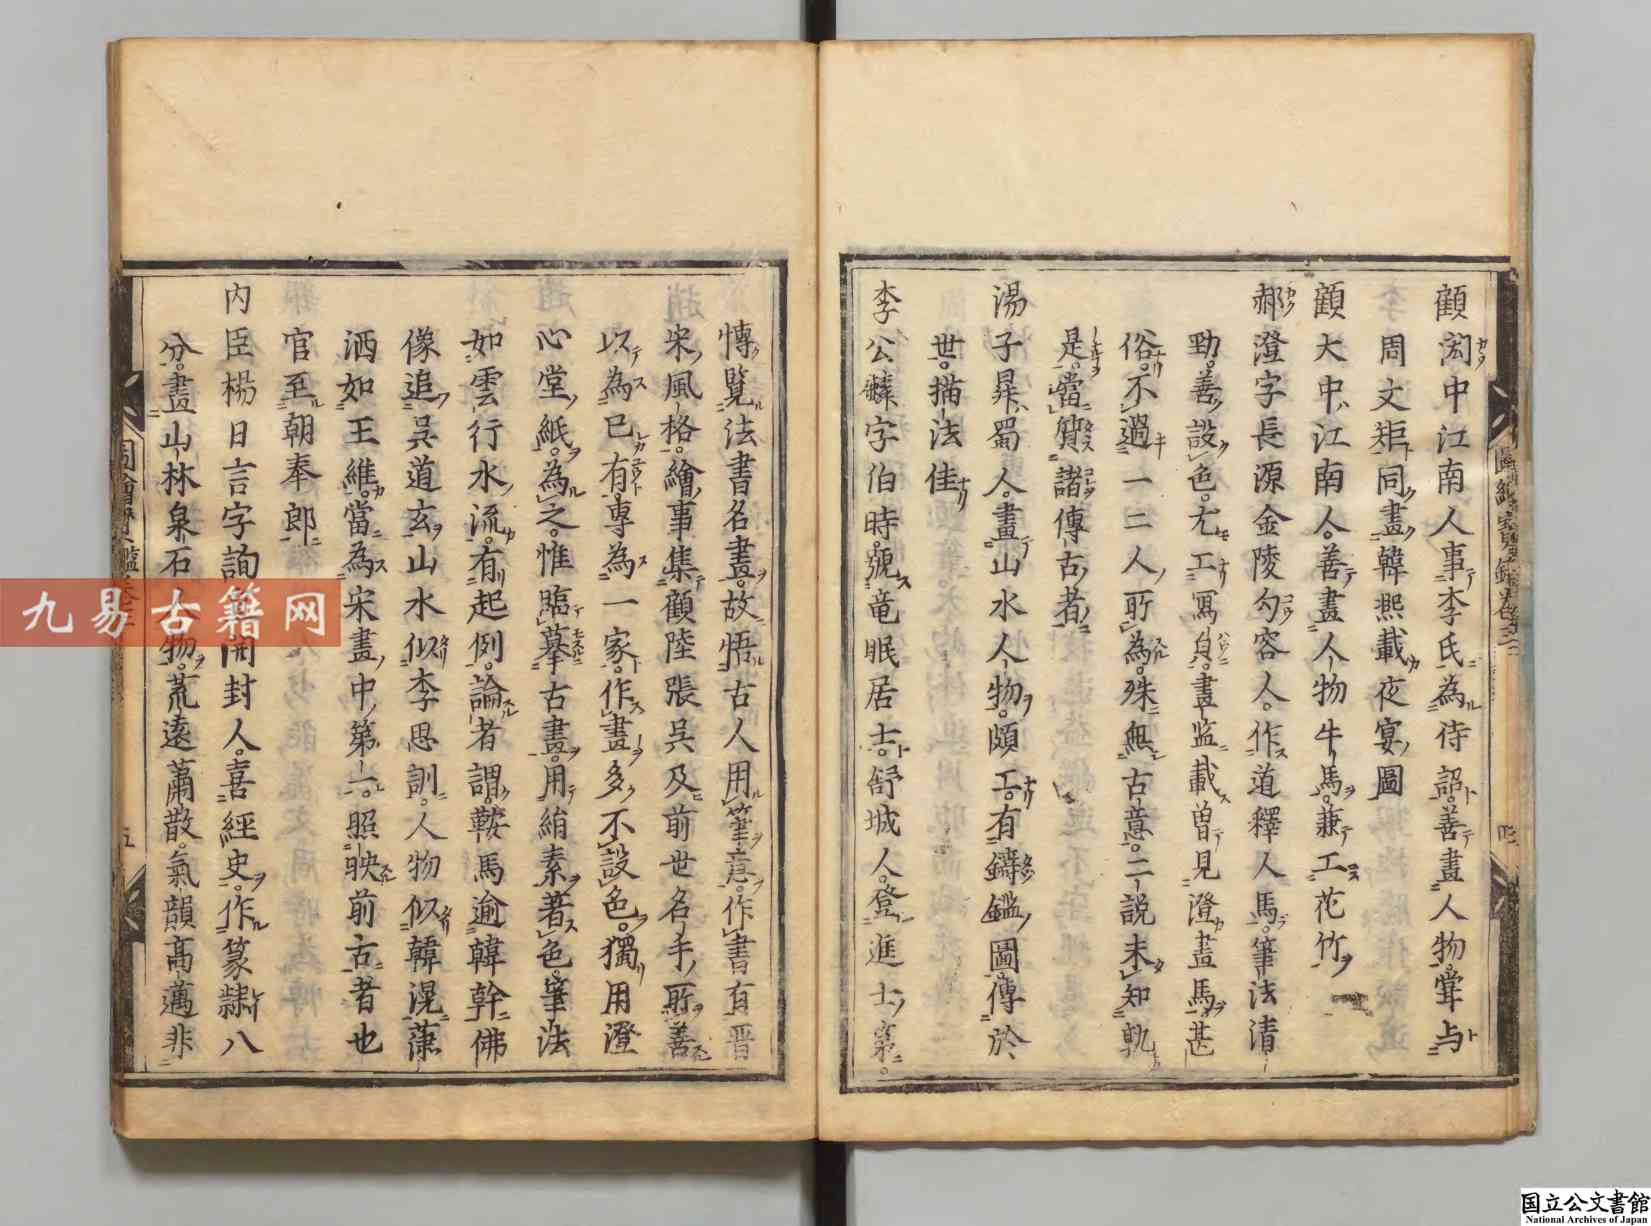 顧閎中江南人事李氏為侍詔善畫人物嘗与
周文矩同畫韓熙載夜宴圖
顧大中江南人善畫人物牛馬兼工花竹
郝澄字長源金陵勾容人作道釋人馬筆法清
勁善設色尤工寫㒵畫監載曽見澄畫馬甚
俗不過一二人所為殊無古意二説未知孰
是當質諸傳古者
湯子昇蜀人畫山水人物頗工有鑄鑑圖傳於
世描法佳
李公麟字伯時號竜眠居士舒城人登進士第
愽覽法書名畫故悟古人用筆意作書有晋
宋風格繪事集顧陸張吳及前世名手所善
以為已有専為一家作畫多不設色獨用澄
心堂紙為之惟臨摹古畫用絹素著色筆法
如雲行水流有起例論者謂鞍馬逾韓幹佛
像追吳道玄山水似李思訓人物似韓滉蕭
洒如王維當為宋畫中第一照映前古者也
官至朝奉郎
内臣楊日言字詢開封人喜經史作篆隷八
分畫山林泉石人物荒遠蕭散氣韻髙邁非
圖繪寳鑑卷之三
四
五
九易古籍网
国立公文書館
National Archives of Japan